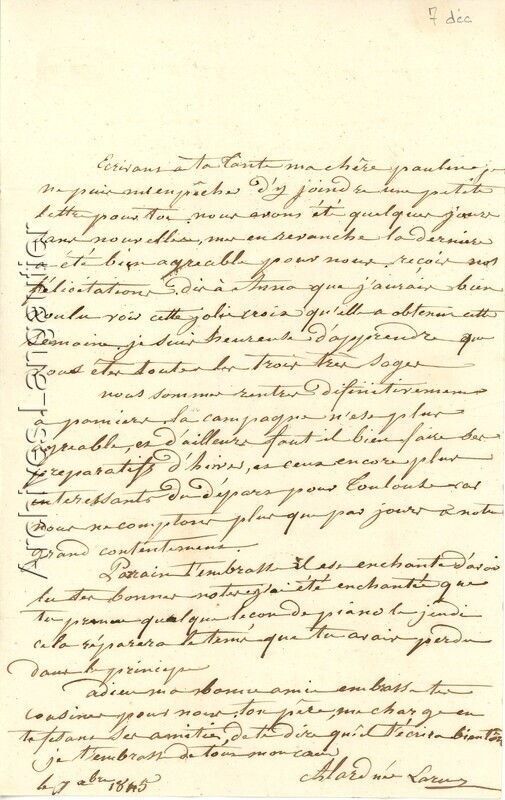 7 déc
Ecrivant à ta Tante ma chère pauline je
ne puis m'empêche d'y joindre une petite
lettre pour toi. nous avons été quelques jours
sans nouvelles, mes en revanche la derniere
a été bien agreable pour nous. reçois nos
félicitations. dis à Anna que j'aurais bien
voulu voir cette jolie croix qu'elle a obtenu cette
semaine. je suis heureuse d'apprendre que
vous êtes toutes les trois très sages
nous sommes rentrés difinitivement
a pamiers. la campagne n'est plus
agreable et d'ailleurs faut il bien faire ses
preparatifs d'hiver, et ceux encore plus
interessants du départ pour Toulouse car
nous ne comptons plus que par jours a notre
grand contentement.
Parain t'embrasse il est enchanté d'avoir
tu tes bonnes notes été enchantée que
tu prenne quelque leçon de piano le jeudi
cela réparera le tems que tu avais perdu
dans le principe
adieu ma bonne amie embrasse tes
cousines pour nous. ton père, me charge en
te fesant ses amitiés, de te dire qu'il t'écrira bientôt
je t'embrasse de tout mon cœur
le 7 1845